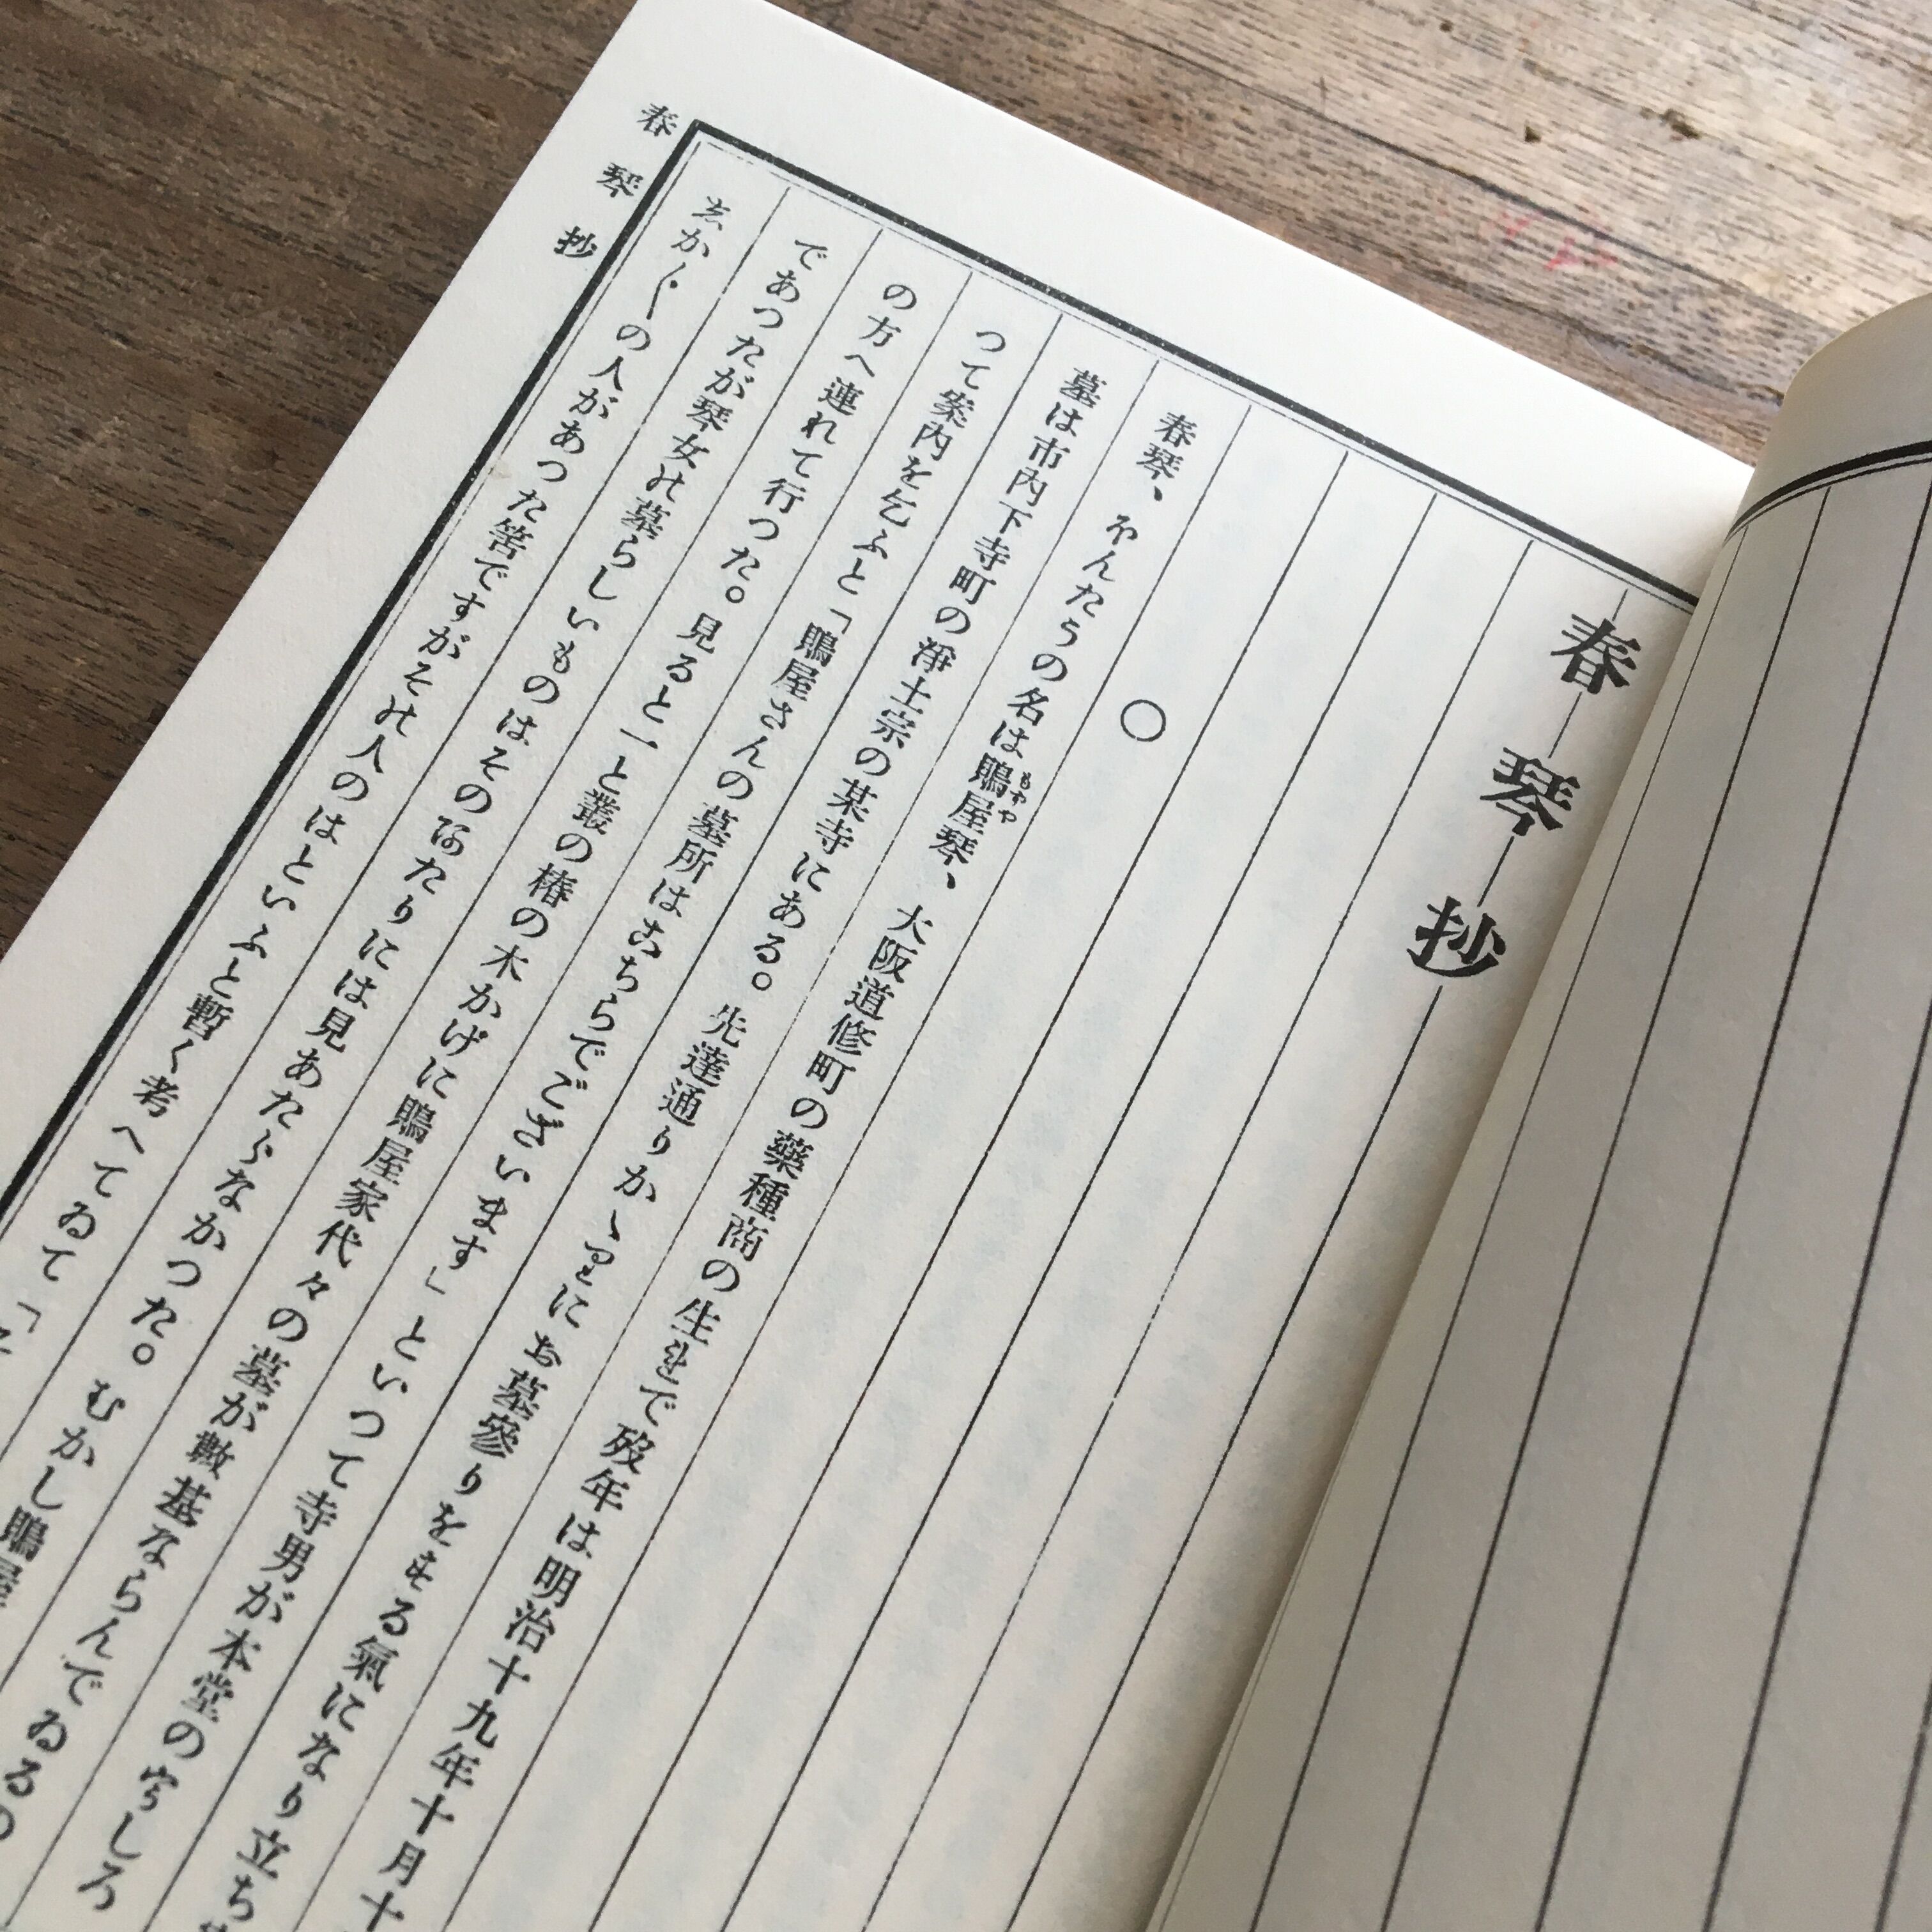 春琴抄
○
春琴、ほんたうの名は鵙屋琴、大阪道修町の藥種商の生まれで歿年は明治十九年十月十
もずや
墓は市内下寺町の淨土宗の某寺にある。先達通りかゝりにお墓參りをする氣になり立ち
つて案内を乞ふと「鵙屋さんの墓所はこちらでございます」といつて寺男が本堂のうしろ
の方へ連れて行つた。見ると一と叢の椿の木かげに鵙屋家代々の墓が數基ならんでゐるの
であつたが琴女の墓らしいものはそのあたりには見あたらなかつた。むかし鵙屋
志か〲の人があつた筈ですがその人のはといふと暫く考へてゐて「
春琴抄